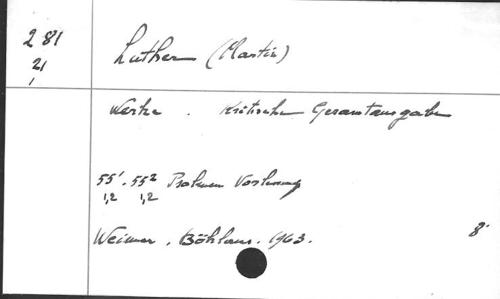 2 81
21
1
Luther (Martin)
Werke . Kritische Gesamtausgabe
55¹ . 55² Psalmen Vorlesung
1,2 1,2
Weimar . Böhlaus . 1963. 8°